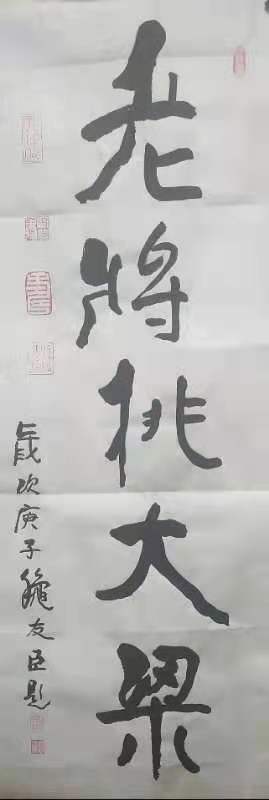 老將挑大梁
歲次庚子 友臣題